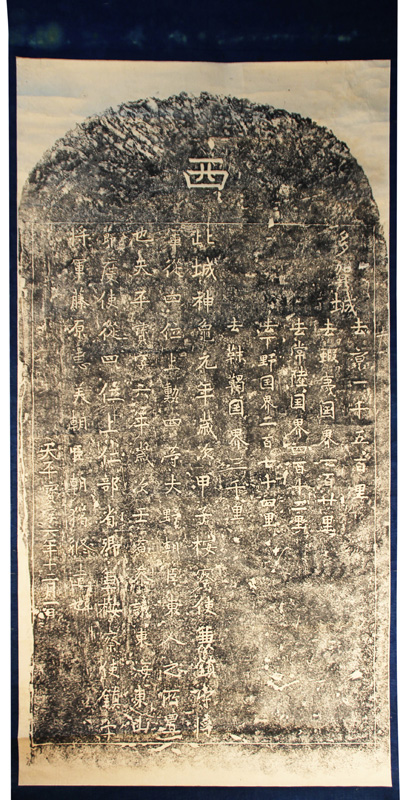 西
多賀城
去京一千五百里
去蝦夷国界一百廿里
去常陸国界四百十二里
去下野国界二百七十四里
去靺鞨国界三千里
此城神龜元年歳次甲子按察使兼鎮守将
軍従四位上勲四等大野朝臣東人之所置
也天平寶字六年歳次壬寅参議東海東山
節度使従四位上仁部省卿兼按察使鎮守
将軍藤原恵美朝臣朝獦修造也
天平寶字六年十二月一日